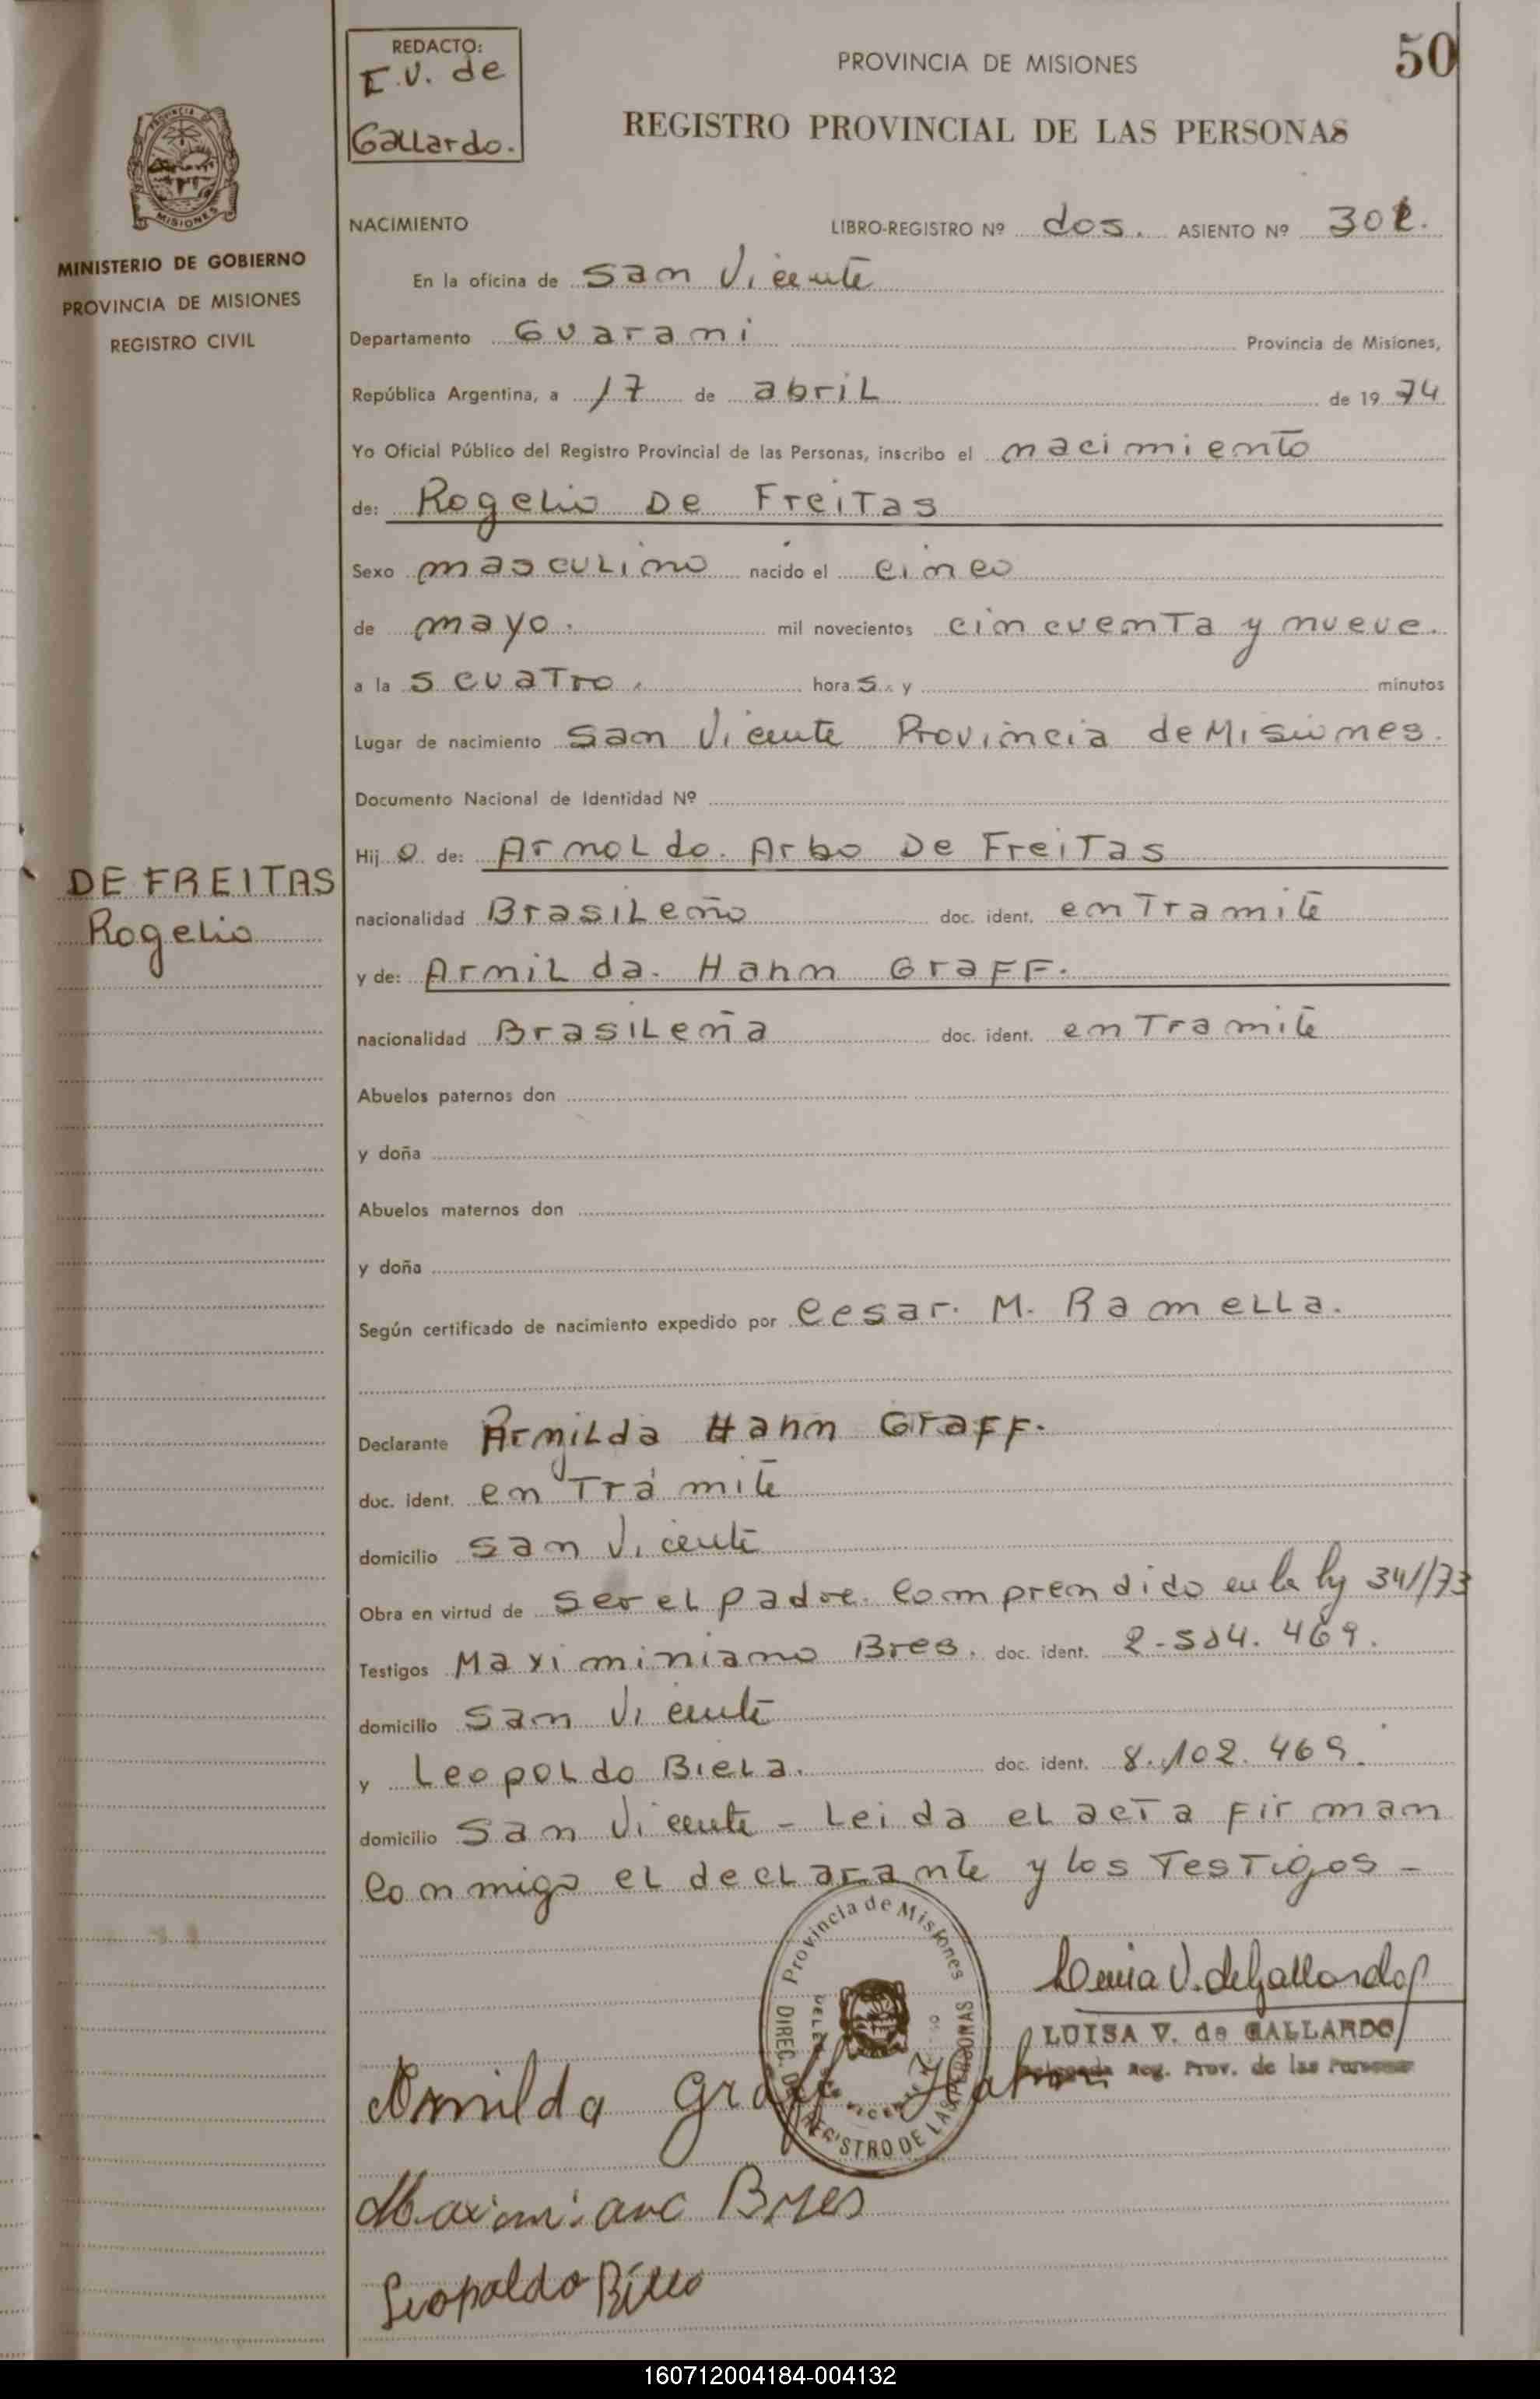 REDACTO:
E.V. de
Gallardo.
PROVINCIA DE MISIONES
50
REGISTRO PROVINCIAL DE LAS PERSONAS
PROVINCIA
MISIONES
MINISTERIO DE GOBIERNO
PROVINCIA DE MISIONES
REGISTRO CIVIL
DE FREITAS
Rogelio
NACIMIENTO LIBRO-REGISTRO Nº dos. ASIENTO Nº
En la oficina de San Vicente
Departamento Guarani Provincia de Misiones,
República Argentina, a 17 de abril de 1974
Yo Oficial Público del Registro Provincial de las Personas, inscribo el nacimiento
de: Rogelio De Freitas
Sexo masculino nacido el cinco
de mayo. mil novecientos cincuenta y nueve.
a las cuatro. horas. y minutos
Lugar de nacimiento San Vicente Provincia de Misiones.
Documento Nacional de Identidad Nº
Hijo de: Arnoldo. Arbo De Freitas
nacionalidad Brasileño doc. ident. en Tramite
y de: Armilda. Hahn Graff.
nacionalidad Brasileña doc. ident. en Tramite
Abuelos paternos don
y doña
Abuelos maternos don
y doña
Según certificado de nacimiento expedido por Cesar. M. Ramella.
Declarante Armilda Hahn Graff.
doc. ident. en Trámite
domicilio San Vicente
Obra en virtud de ser el padre. Comprendido en la ley
Testigos Maximiniano Bres. doc. ident.
domicilio San Vicente
y Leopoldo Biela. doc. ident. 8.102.469.
domicilio San Vicente - Leida el acta firman
Conmigo el declarante y los Testigos -
Provincia de Misiones
DIREC. REGISTRO DE LAS PERSONAS
Luisa V. de Gallardo
LUISA V. de GALLARDO
Delegada Reg. Prov. de las Personas
Armilda Graff Hahn
Maximiano Bres
Leopoldo
160712004184-004132